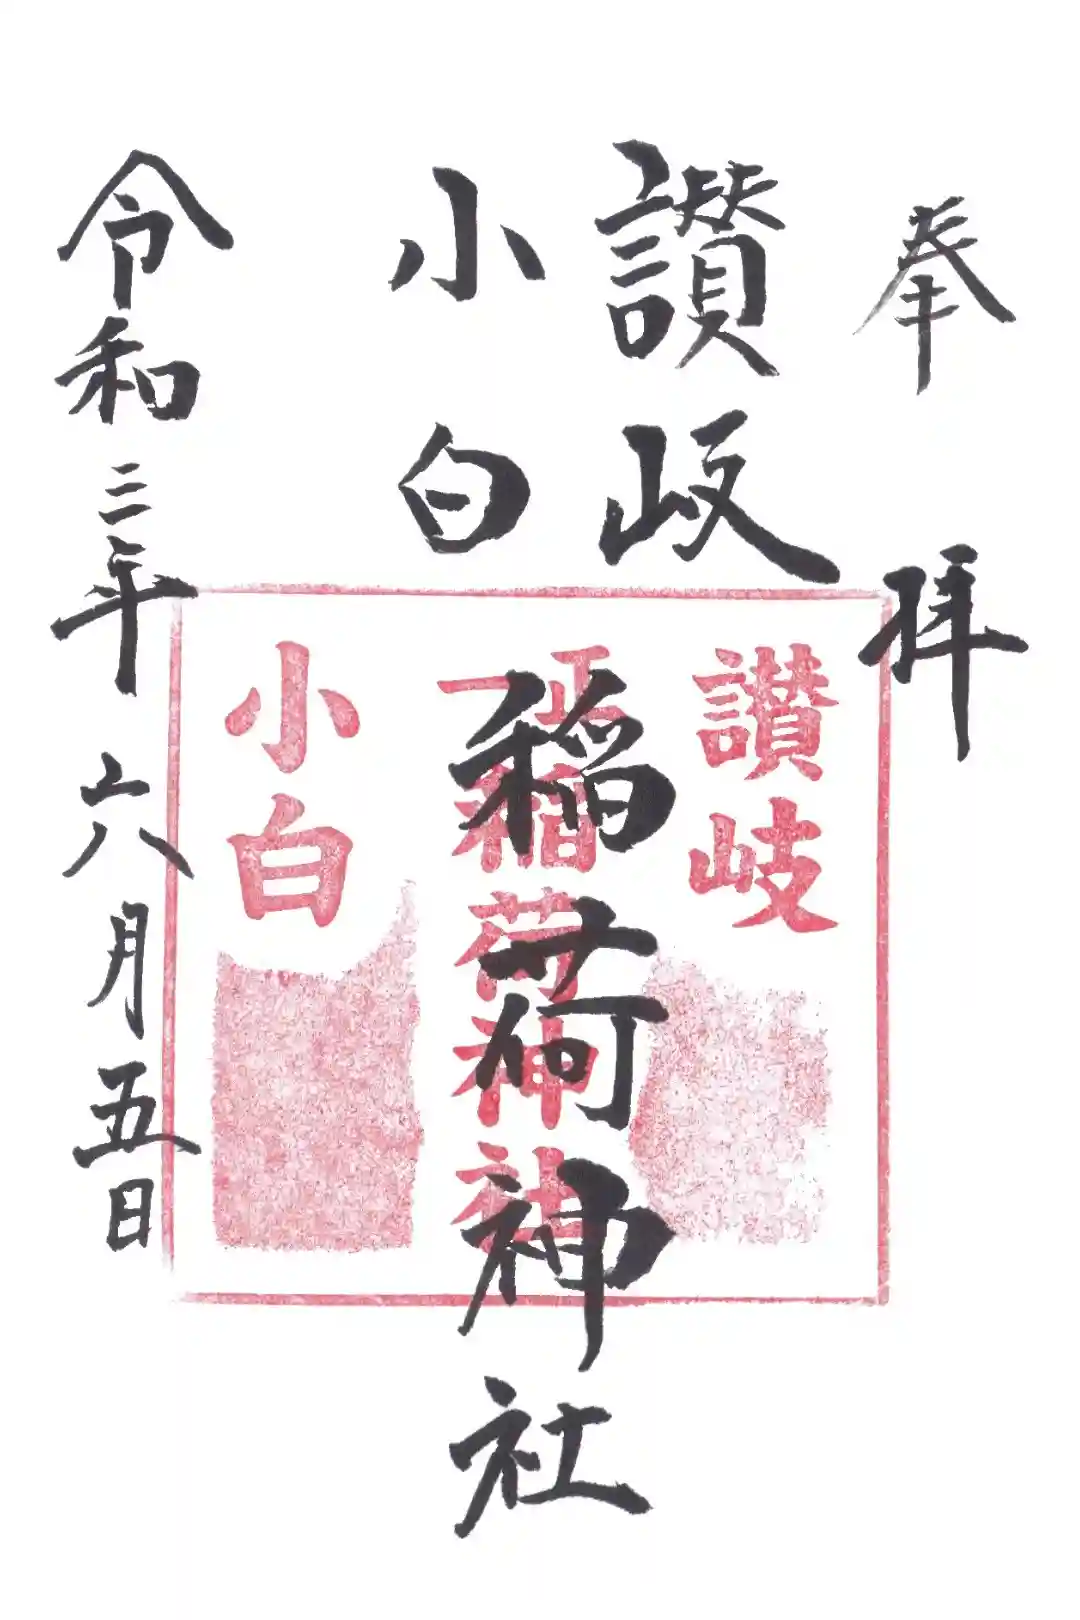 奉拝
讃岐
小白
稲荷神社
令和三年六月五日
讃岐
正一位
稲荷神社
小白